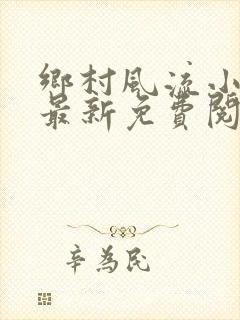 鄉村風流小
最新免費閱
辛為民